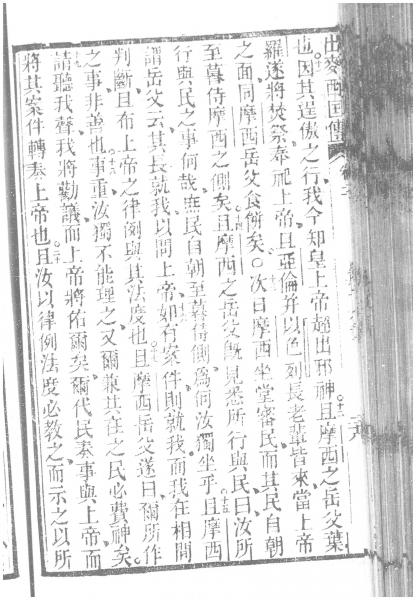 出麥西國傳
也因其逞傲之行我今知皇上帝超出邪神且摩西之岳父葉
羅遂將焚祭奉祀上帝且亞倫并以色列長老輩皆來當上帝
之面同摩西岳父食餅矣○次日摩西坐堂審民而其民自朝
至暮侍摩西之側矣且摩西之岳父旣見悉所行與民曰汝所
行與民之事何哉庶民自朝至暮侍側爲何汝獨坐乎且摩西
謂岳父云其民就我以問上帝如有案件則就我而我在相間
判斷且布上帝之律例與其法度也且摩西岳父遂曰爾所作
之事非善也事重汝獨不能理之又爾兼共在之民必費神矣
請聽我聲我將勸議而上帝將佑爾矣爾代民奏事與上帝而
將其案件轉奏上帝也且汝以律例法度必教之而示之以所